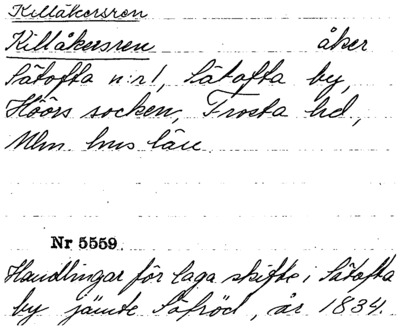 Killåkersren
Killåkersren åker
Sätofta n:r 1, Sätofta by,
Höörs socken, Frosta hd,
Mlm hus län
Nr 5559
Handlingar för laga skifte i Sätofta
by jämte Säfröd, år 1834.